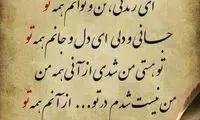 ای زندگی، تن و توانم همه تو
جانی و دلی ای دل و جانم همه تو
تو هستی من شدی از آنی همه من
من نیست شدم در تو... از آنم همه تو